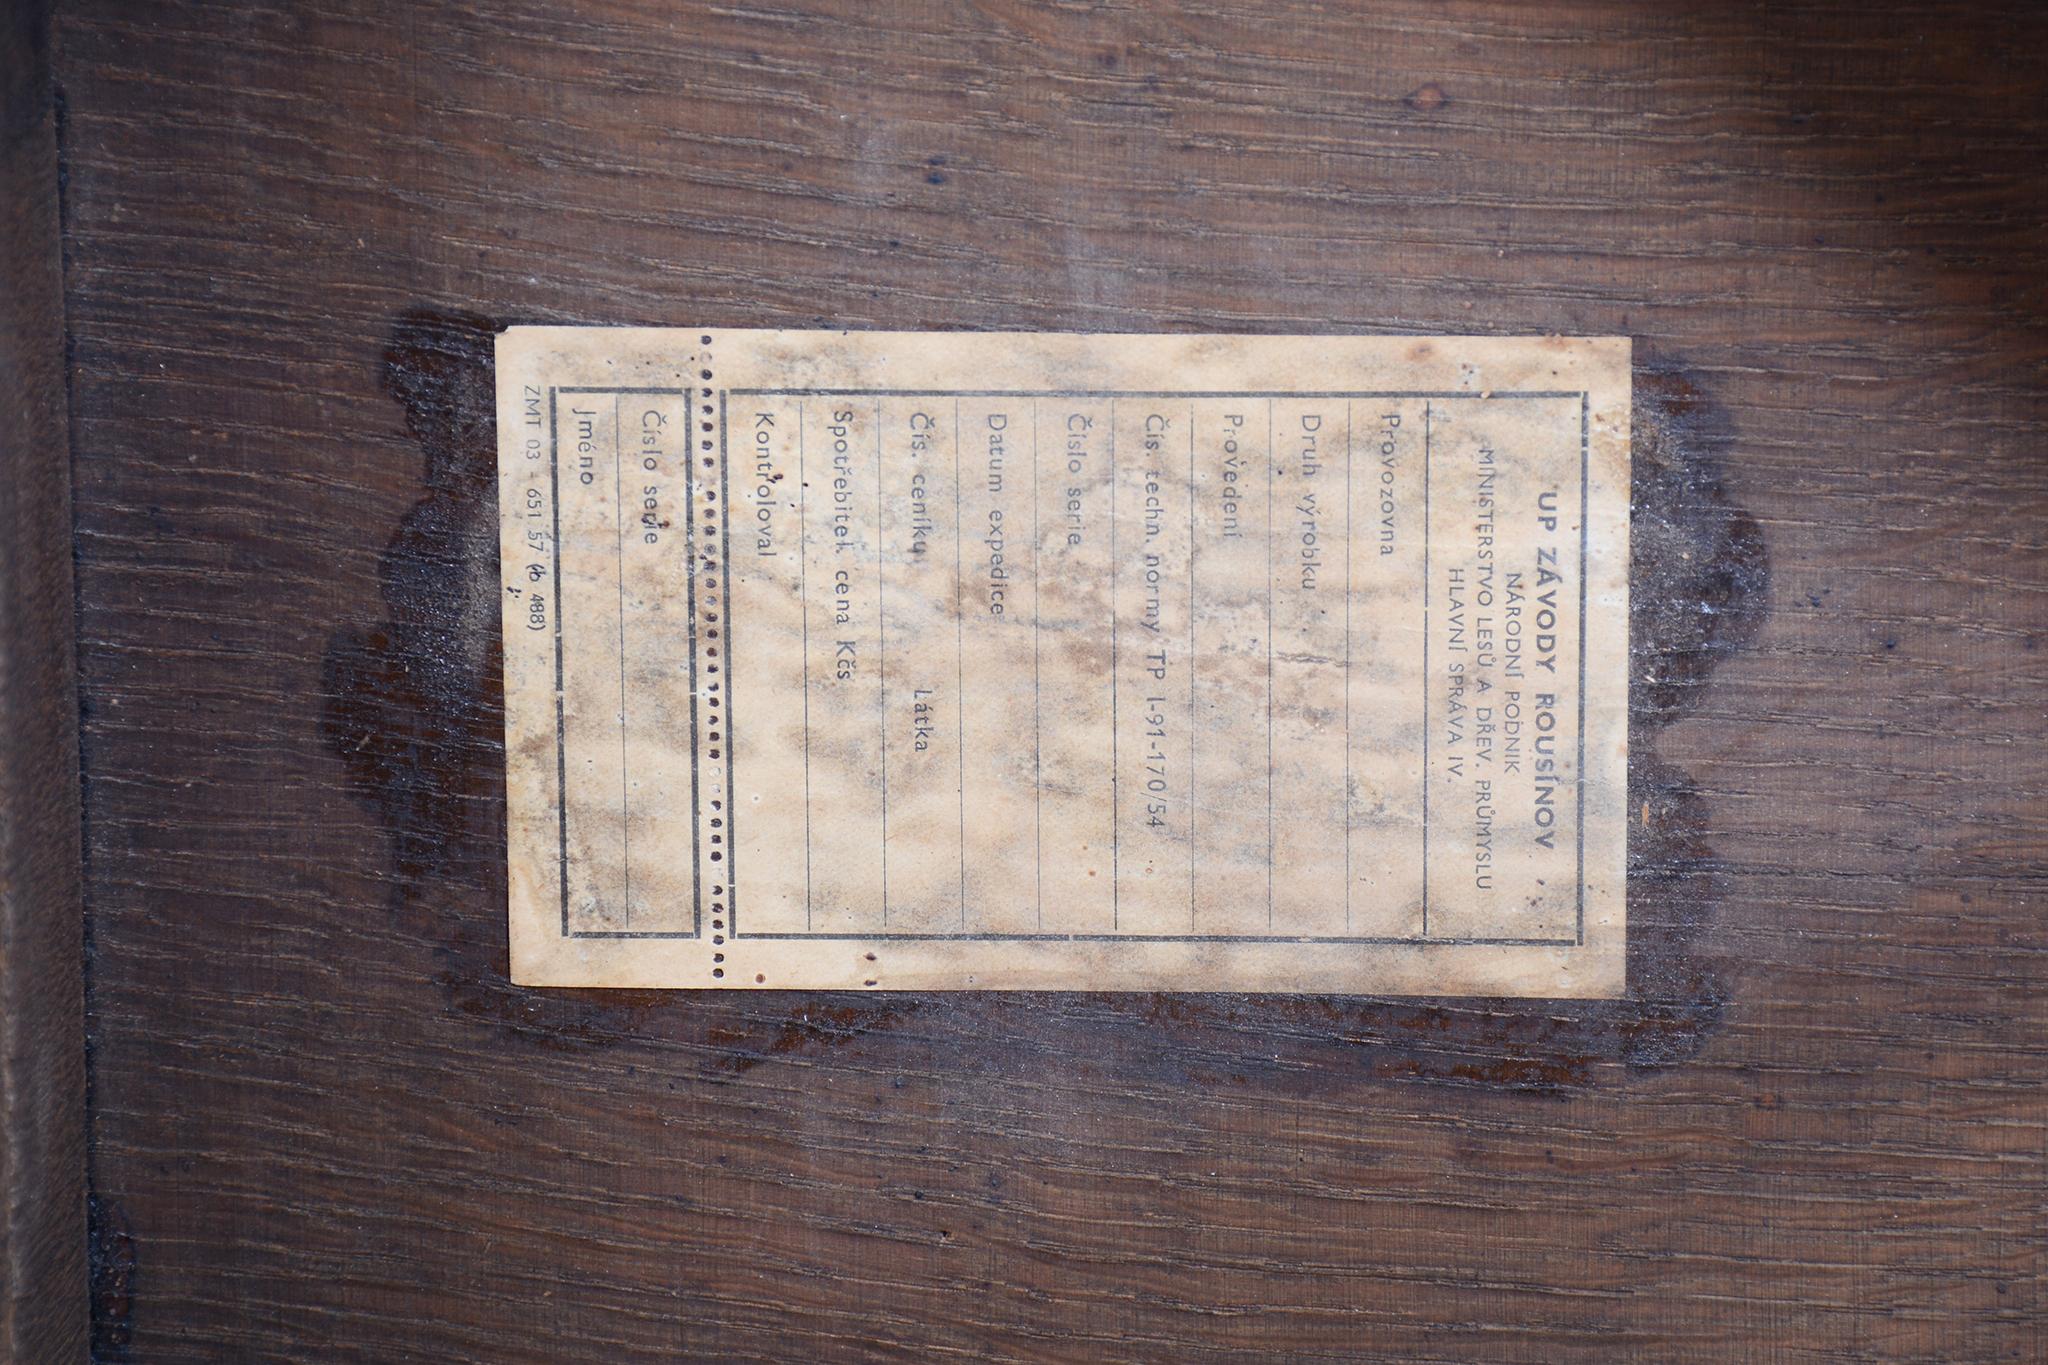 UP ZÁVODY ROUSÍNOV,
NÁRODNÍ PODNIK
MINISTERSTVO LESŮ A DŘEV. PRŮMYSLU
HLAVNÍ SPRÁVA IV.
Provozovna
Druh výrobku
Provedení
Čís. techn. normy TP 1-91-170/54
Číslo serie
Datum expedice
Čís. ceníku Látka
Spotřebitel. cena Kčs
Kontroloval
Číslo serie
Jméno
ZMT 03 - 651 57 488)